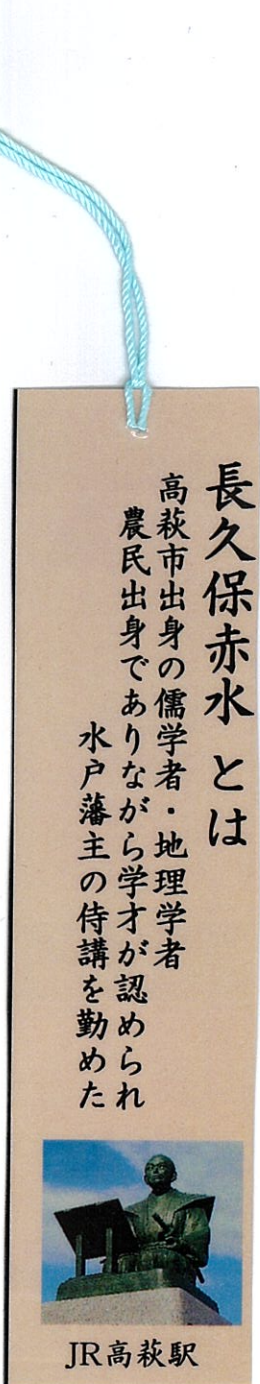 長久保赤水 とは
高萩市出身の儒学者・地理学者
農民出身でありながら学才が認められ
水戸藩主の侍講を勤めた
JR高萩駅